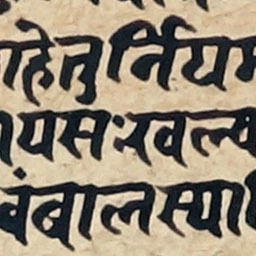 ाहेतुर्नियम
ायसःखल्व
वंबालस्या